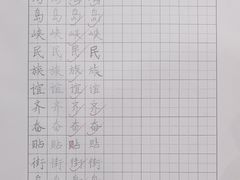 岛 岛 岛 岛
峡 峡 峡 峡
民 民 民 民
族 族 族 族
谊 谊 谊 谊
齐 齐 齐 齐
奋 奋 奋 奋
贴 贴 贴 贴
街 街 街 街